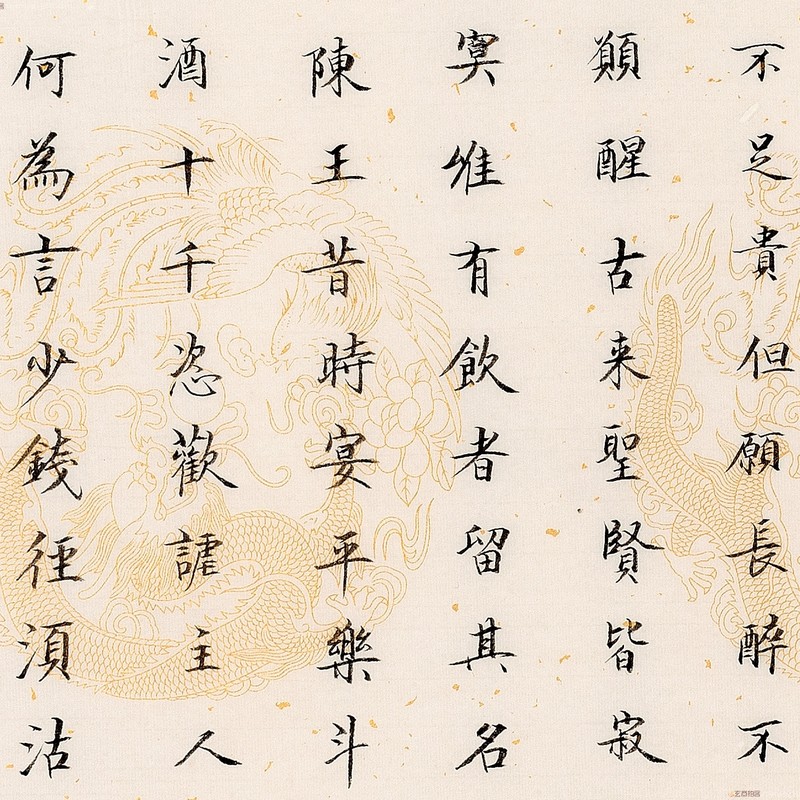 不足貴但願長醉不
願醒古来聖賢皆寂
寞惟有飲者留其名
陳王昔時宴平樂斗
酒十千恣歡謔主人
何為言少錢徑湏沽